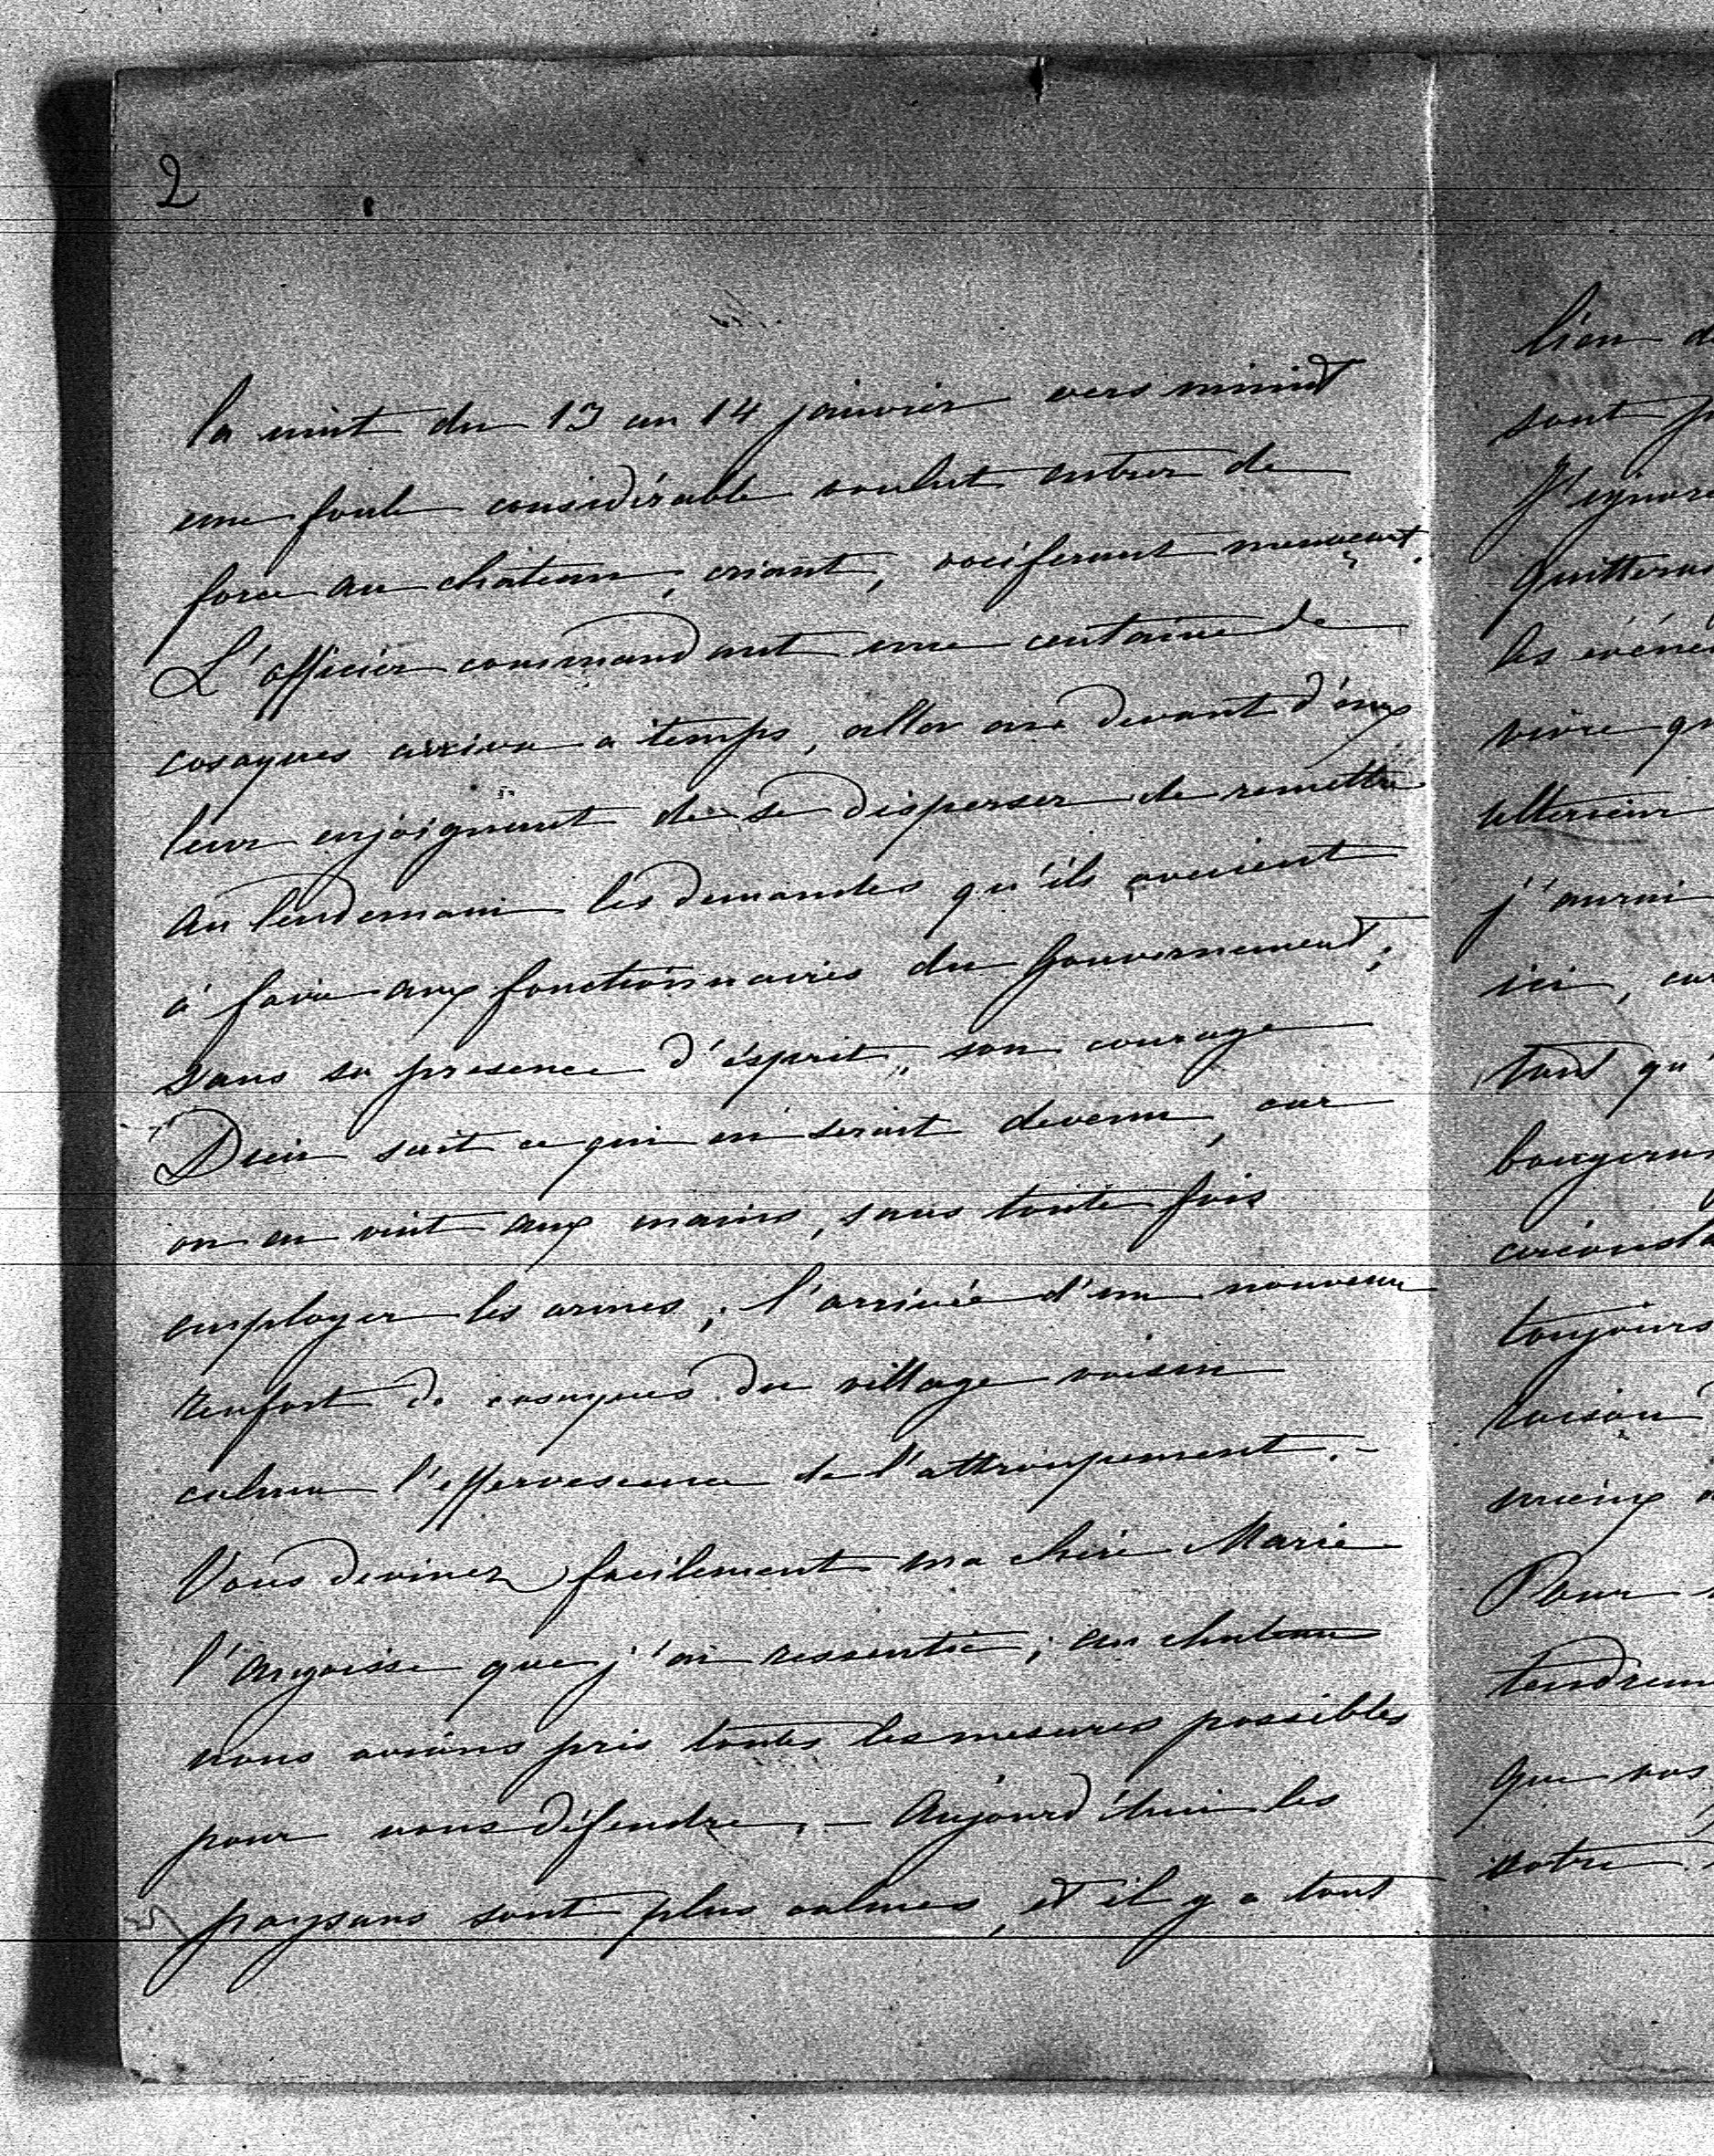 2
la nuit du 13 au 14 janvier vers minuit
une foule considérable voulut entrer de
force au château, criant, vociferant menaçant.
L'officier commandant une centaine de
cosaques arriva a temps, alla au devant d'eux
leur enjoignant de se disperser de remettre
au lendemain les demandes qu'ils avaient
à faire aux fonctionnaires du Gouvernement;
sans sa presence d'ésprit, son courage
Dieu sait ce qui en serait devenu, car
on en vint aux mains, sans toute fois
employer les armes; l'arrivée d'un nouveau
renfort de cosaques du village voisin
calma l'effervescence de l'attroupement. -
Vous devinez facilement ma chère Marie
l'angoisse que j'ai ressentie; au chateau
nous avions pris toutes les mesures possibles
pour nous défendre. - Aujourd'hui les
paysans sont plus calmes, et il y a tout
lieu
sont
J'ignore
les
vivre
ulterieur
j'aurai
ici,
tant qu'
toujours
raison
mieux
Pour
que vos
votre